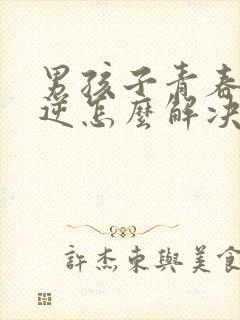 男孩子青春
逆怎麼解决
許杰東與美食